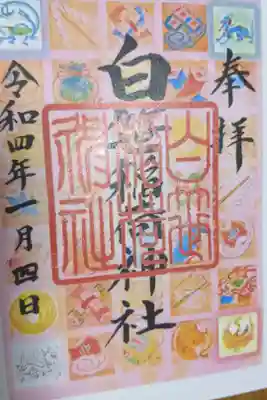 奉拝
白笹稲荷神社
令和四年一月四日